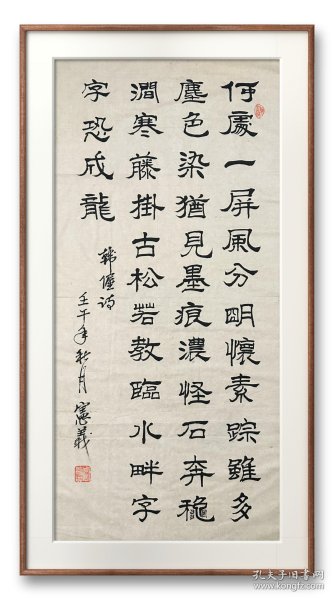 何處一屏風分明懷素踪雖多
塵色染猶見墨痕濃怪石奔穐
澗寒藤掛古松若教臨水畔字
字恐成龍
韩偓诗
壬午年秋月 憲義
孔夫子旧书网
www.kongfz.com